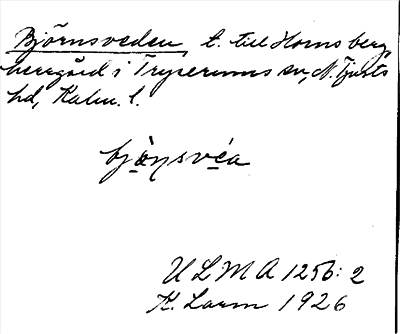 Björnsveden, t. till Hornsberg,
herrgård i Tryserums sn, N. Tjusts
hd, Kalm. l.
bjö̀ṇsve̱a
U L M A 1256: 2
K. Lorm 1926